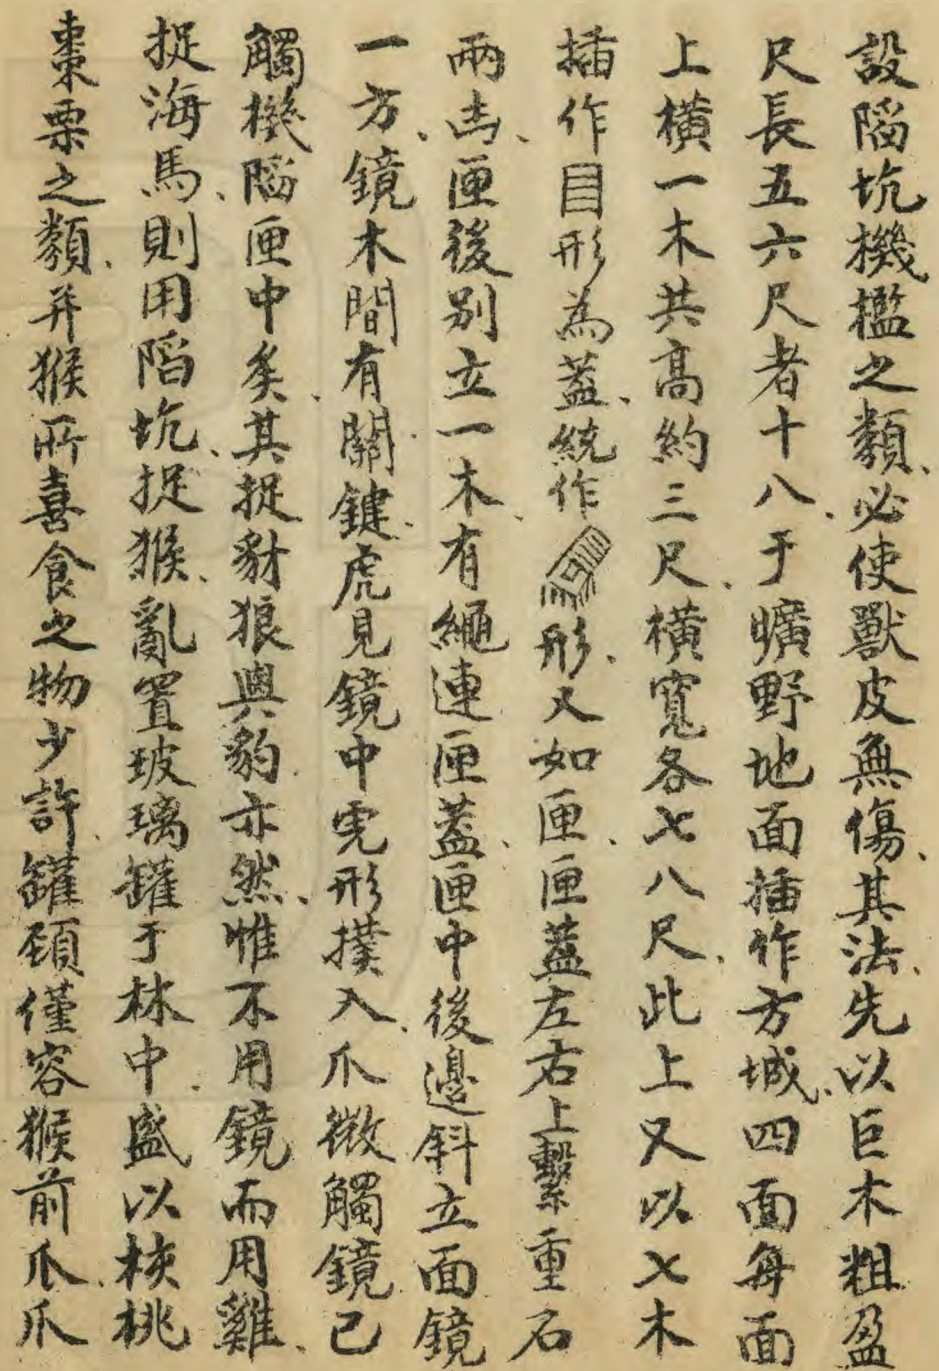 設陷坑機檻之類、必使獸皮無傷、其法、先以巨木粗盈
尺長五六尺者十八、于曠野地面插作方城、四面每面
上橫一木共高約三尺、橫寬各七八尺、此上又以七木
插作目形為蓋、統作形、又如匣、匣蓋左右上繫重石
兩、匣後別立一木、有繩連匣蓋、匣中後邊斜立面鏡
一方、鏡木間有關鍵、虎見鏡中虎形撲入、爪微觸鏡已
觸機陷匣中矣、其捉豺狼與豹亦然、惟不用鏡而用雞、
捉海馬、則用陷坑、捉猴、亂置玻璃罐于林中、盛以核桃
棗栗之類、并猴所喜食之物少許、罐頸僅容猴前爪、爪